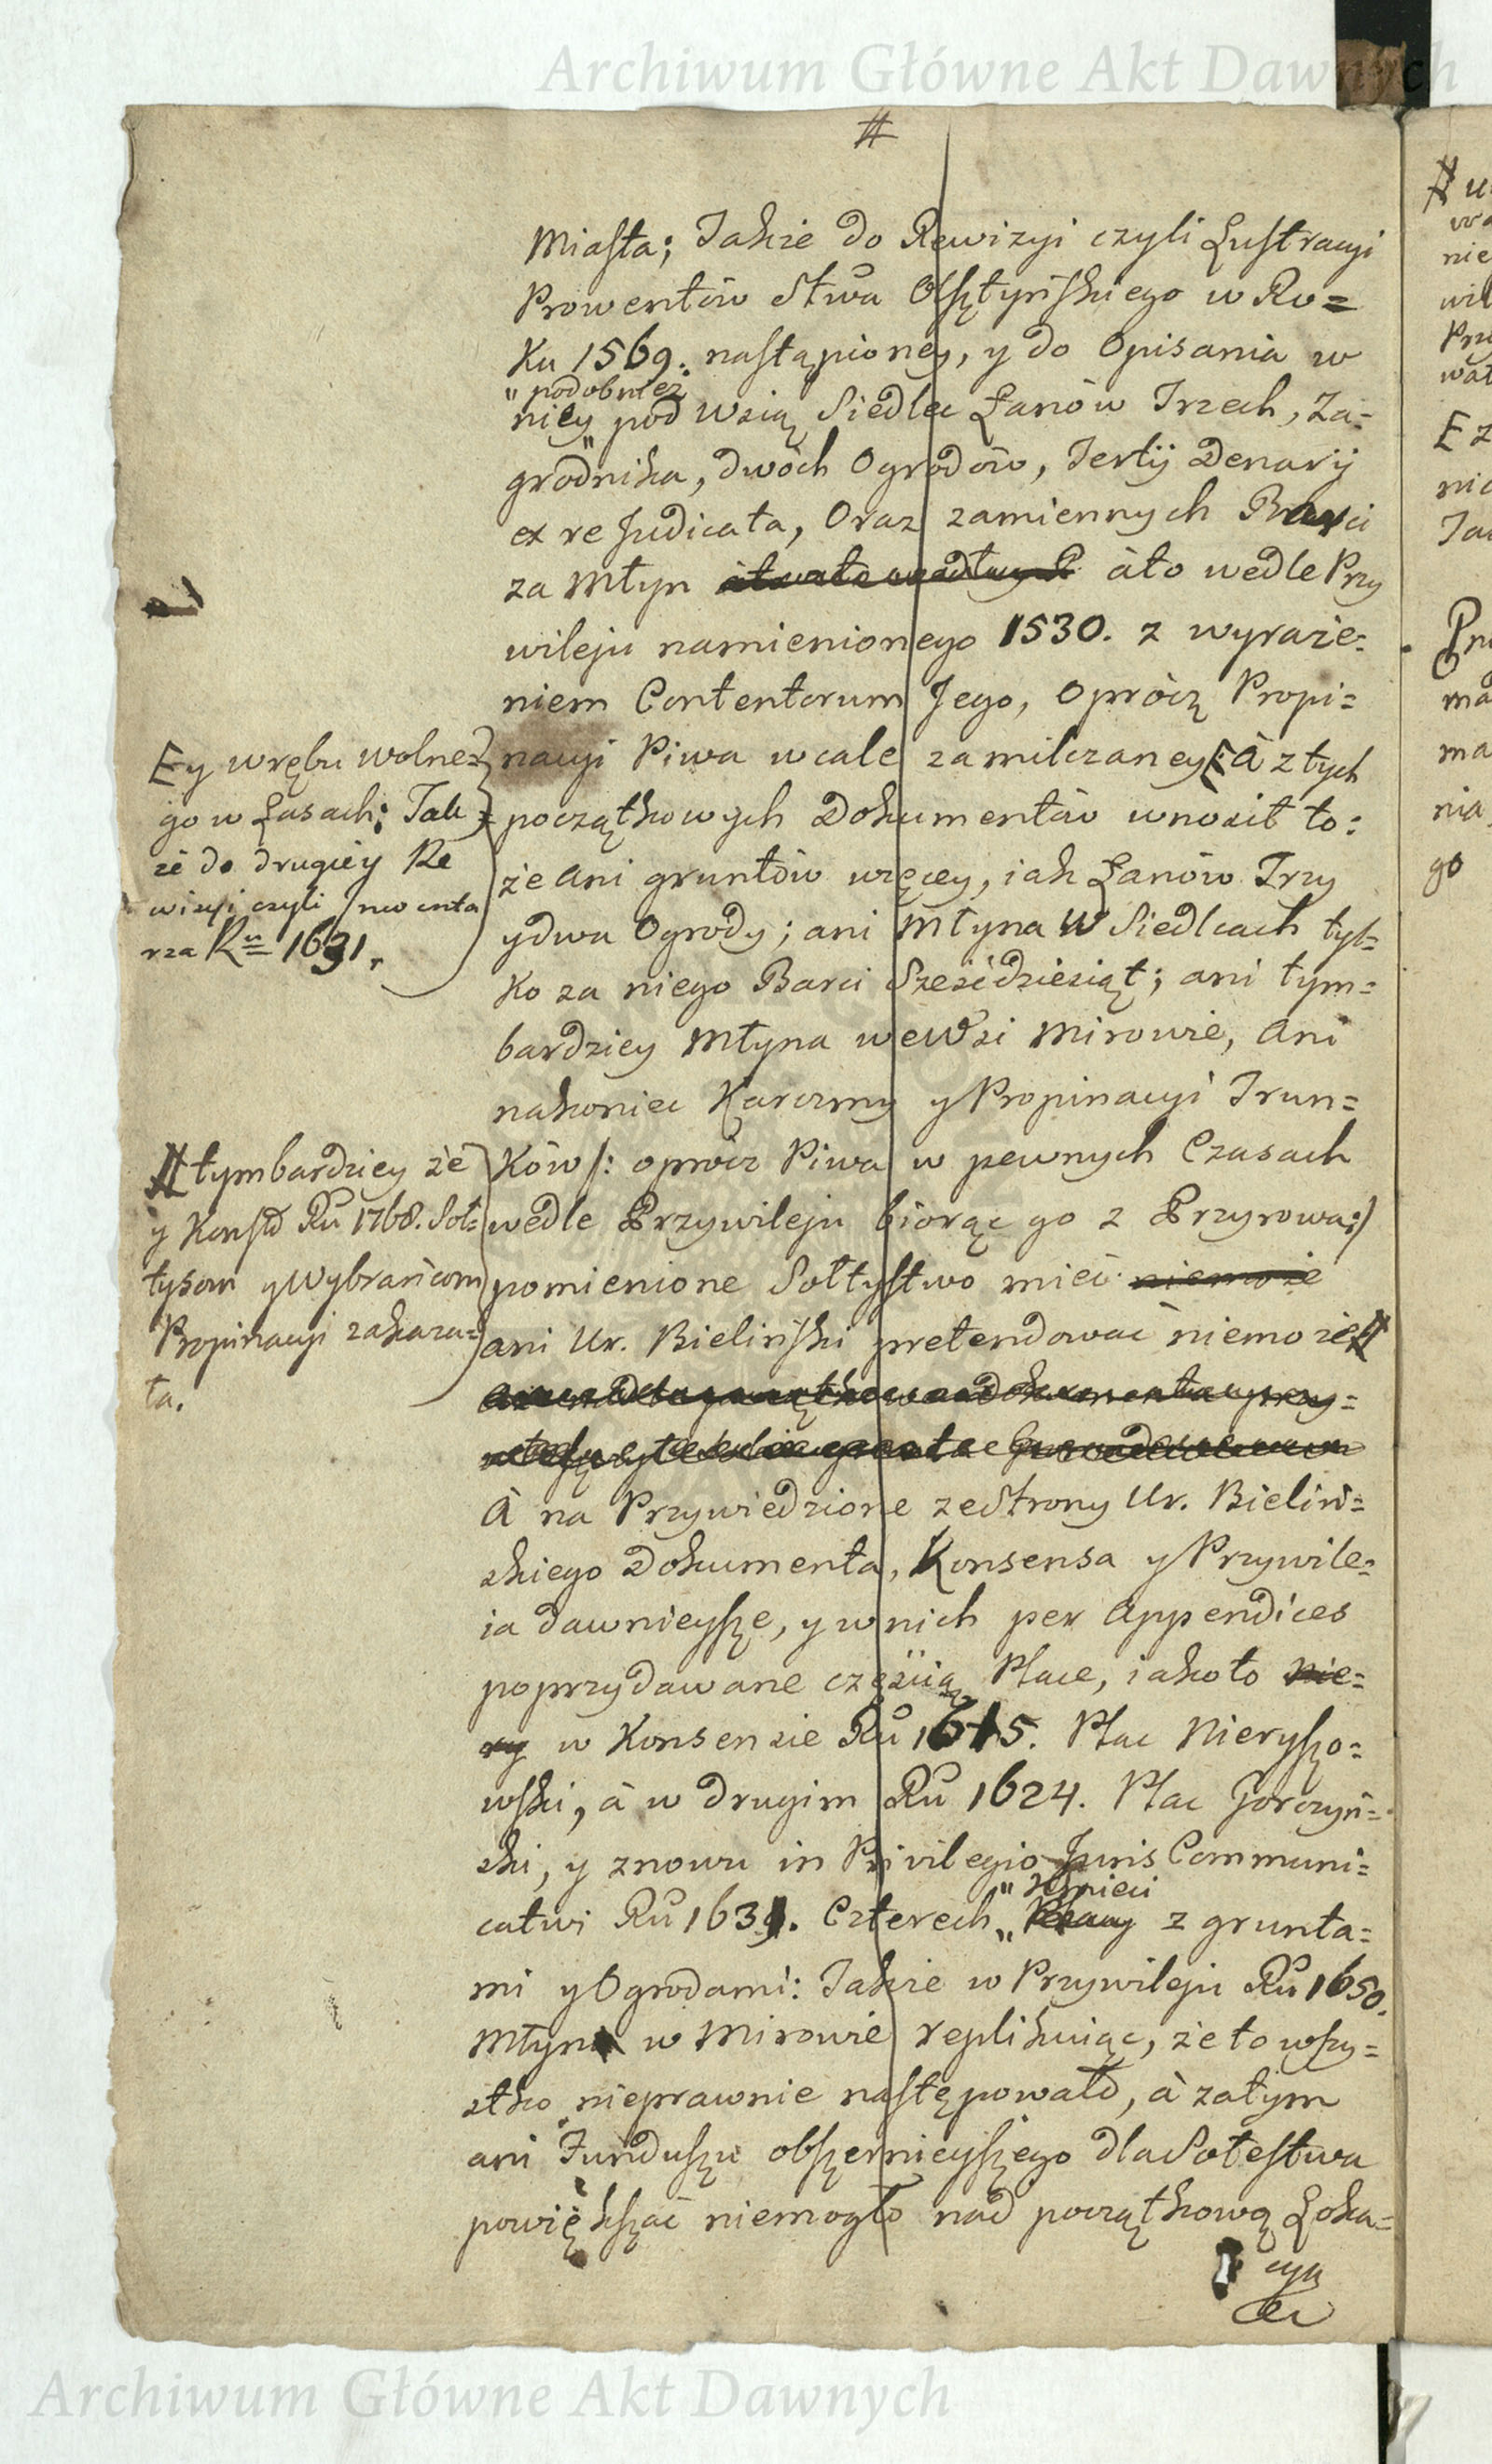 Archiwum Główne Akt Dawnych
#
Miasta; Takze do Rewizyi czyli Lustracyi
Prowentów Stwa Olsztyńskiego w Ro=
ku 1569. nastąpioney, y do Opisania w
" podobnież
niey " pod Wsią Siedlec Łanów Trzech, Za=
grodnika, dwóch Ogrodów, Tertÿ Denarÿ
ex re Judicata, Oraz zamiennych Barci
za Młyn àto wedle Przy
wileju namienionego 1530. z wyraże=
niem Contentorum Jego, Oprócz Propi=
nacyi Piwa wcale zamilczaney: À z tych
początkowych Dokumentów wnosił to:
że Ani gruntów więcey, iak Łanów Trzy
y dwa Ogrody; ani Młyna w Siedlcach tyl=
ko za niego Barci Sześćdziesiąt; ani tym=
bardziey Młyna we Wsi Mirowie, Ani
nakoniec Karczmy y Propinacyi Trun=
ków /: oprócz Piwa w pewnych Czasach
wedle Przywileju biorąc go z Przyrowa :/
pomienione Sołtystwo mieć niemoże
ani Ur. Bieliński pretendować niemoże #
À na Przywiedzione ze Strony Ur. Bieliń=
skiego Dokumenta, Konsensa y Przywile=
ia dawnieysze, y w nich per Appendices
poprzydawane częścią Place, iako to nie=
ry w Konsensie Ru 1615. Plac Nieryszo=
wski, à w drugim Ru 1624. Plac Gorczyń=
ski, y znowu in Privilegio Juris Communi=
" Kmieci
cativi Ru 1631. Czterech " z grunta=
mi y Ogrodami: Takze w Przywileju Ru 1650.
Młyn w Mirowie replikuiąc, że to wszy=
stko nieprawnie następowało, à zatym
ani Funduszu obszernieyszego dla Sołestwa
powiększać niemogło nad początkową Loka=
cyą
E y wrębu wolne=
go w Lasach; Tak=
że do drugiéy Re
wizyi czyli Inwenta
rza Ru 1631.
# tymbardziey że
y Konst Ru 1768. Soł=
tysom y Wybrańcom
Propinacyi zakaza=
ła.
Archiwum Główne Akt Dawnych